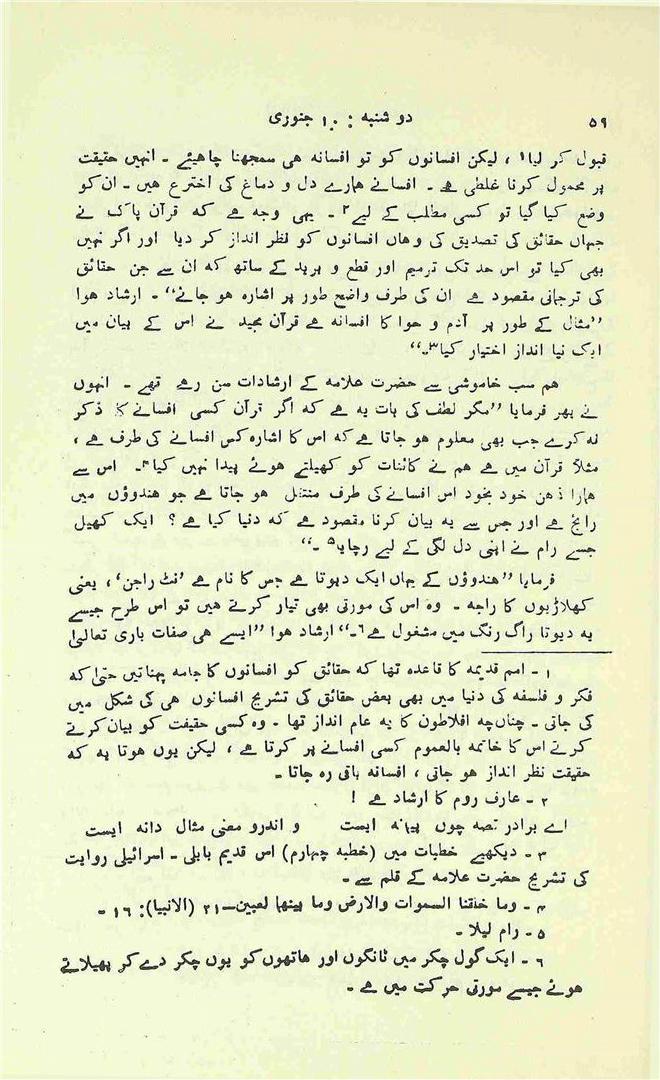 ۵۹
دو شنبہ : ۱۰ جنوری
قبول کر لیا۱ ، لیکن افسانوں کو تو افسانہ ھی سمجھنا چاھیئے ۔ انہیں حقیقت
پر محمول کرنا غلطی ھے ۔ افسانے ھمارے دل و دماغ کی اختراع ھیں ۔ ان کو
وضع کیا گیا تو کسی مطلب کے لیے۲ ۔ یہی وجہ ھے کہ قرآن پاک نے
جہاں حقائق کی تصدیق کی وھاں افسانوں کو نظر انداز کر دیا اور اگر نہیں
بھی کیا تو اس حد تک ترمیم اور قطع و برید کے ساتھ کہ ان سے جن حقائق
کی ترجمانی مقصود ھے ان کی طرف واضح طور پر اشارہ ھو جائے“ ۔ ارشاد ھوا
”مثال کے طور پر آدم و حوا کا افسانہ ھے قرآن مجید نے اس کے بیان میں
ایک نیا انداز اختیار کیا۳۔“
ھم سب خاموشی سے حضرت علامہ کے ارشادات سن رھے تھے ۔ انہوں
نے پھر فرمایا ”مگر لطف کی بات یہ ھے کہ اگر قرآن کسی افسانے کا ذکر
نہ کرے جب بھی معلوم ھو جاتا ھے کہ اس کا اشارہ کس افسانے کی طرف ھے ،
مثلاً قرآن میں ھے ھم نے کائنات کو کھیلتے ھوئے پیدا نہیں کیا۴۔ اس سے
ھمارا ذھن خود بخود اس افسانے کی طرف منتقل ھو جاتا ھے جو ھندوؤں میں
رائج ھے اور جس سے یہ بیان کرنا مقصود ھے کہ دنیا کیا ھے ؟ ایک کھیل
جسے رام نے اپنی دل لگی کے لیے رچایا۵ ۔“
فرمایا ”ھندوؤں کے جہاں ایک دیوتا ھے جس کا نام ھے ’نٹ راجن‘، یعنی
کھلاڑیوں کا راجہ ۔ وہ اس کی مورتی بھی تیار کرتے ھیں تو اس طرح جیسے
یہ دیوتا راگ رنگ میں مشغول ھے۶۔“ ارشاد ھوا ”ایسے ھی صفات باری تعالیٰ
۱ ۔ امم قدیمہ کا قاعدہ تھا کہ حقائق کو افسانوں کا جامہ پہناتیں حتیٰ کہ
فکر و فلسفہ کی دنیا میں بھی بعض حقائق کی تشریح افسانوں ھی کی شکل میں
کی جاتی ۔ چناں‌چہ افلاطون کا یہ عام انداز تھا ۔ وہ کسی حقیقت کو بیان کرتے
کرتے اس کا خاتمہ بالعموم کسی افسانے پر کرتا ھے ، لیکن یوں ھوتا یہ کہ
حقیقت نظر انداز ھو جاتی ، افسانہ باقی رہ جاتا ۔
۲ ۔ عارف روم کا ارشاد ھے !
اے برادر قصہ چوں پیمانہ ایست و اندرو معنی مثال دانہ ایست
۳ ۔ دیکھیے خطبات میں (خطبہ چہارم) اس قدیم بابلی ۔ اسرائیلی روایت
کی تشریح حضرت علامہ کے قلم سے ۔
۴ ۔ وما خلقنا السموات والارض وما بینھما لعبین—۲۱ (الانبیا): ۱۶ ۔
۵ ۔ رام لیلا ۔
۶ ۔ ایک گول چکر میں ٹانگوں اور ھاتھوں کو یوں چکر دے کر پھیلاتے
ھوئے جیسے مورتی حرکت میں ھے ۔